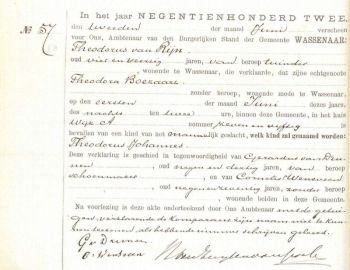 No 57
In het jaar NEGENTIENHONDERD TWEE,
den tweeden der maand Juni verscheen
voor Ons, Ambtenaar van den Burgerlijken Stand der Gemeente WASSENAAR:
Theodorus van Rijn
oud vier en veertig jaren, van beroep tuinder
wonende te Wassenaar, die verklaarde, dat zijne echtgenoote
Theodora Boezaart
zonder beroep, wonende mede te Wassenaar,
op den eersten der maand Juni dezes jaars,
des nachts ten twee ure, binnen deze Gemeente, in het huis
Wijk A nommer zeven en vijftig is
bevallen van een kind van het mannelijk geslacht, welk kind zal genaamd worden:
Theodorus Johannes
Deze verklaring is geschied in tegenwoordigheid van Gerardus van
oud negen en dertig jaren, van beroep
schoenmaker, en van Cornelis
oud negen en zestig jaren, zonder beroep
wonende in deze Gemeente.
Na voorlezing is deze akte onderteekend door Ons Ambtenaar met de getuigen, verklarende de Komparant zijn naam niet te kunnen, als hebbende nimmer schrijven geleerd.